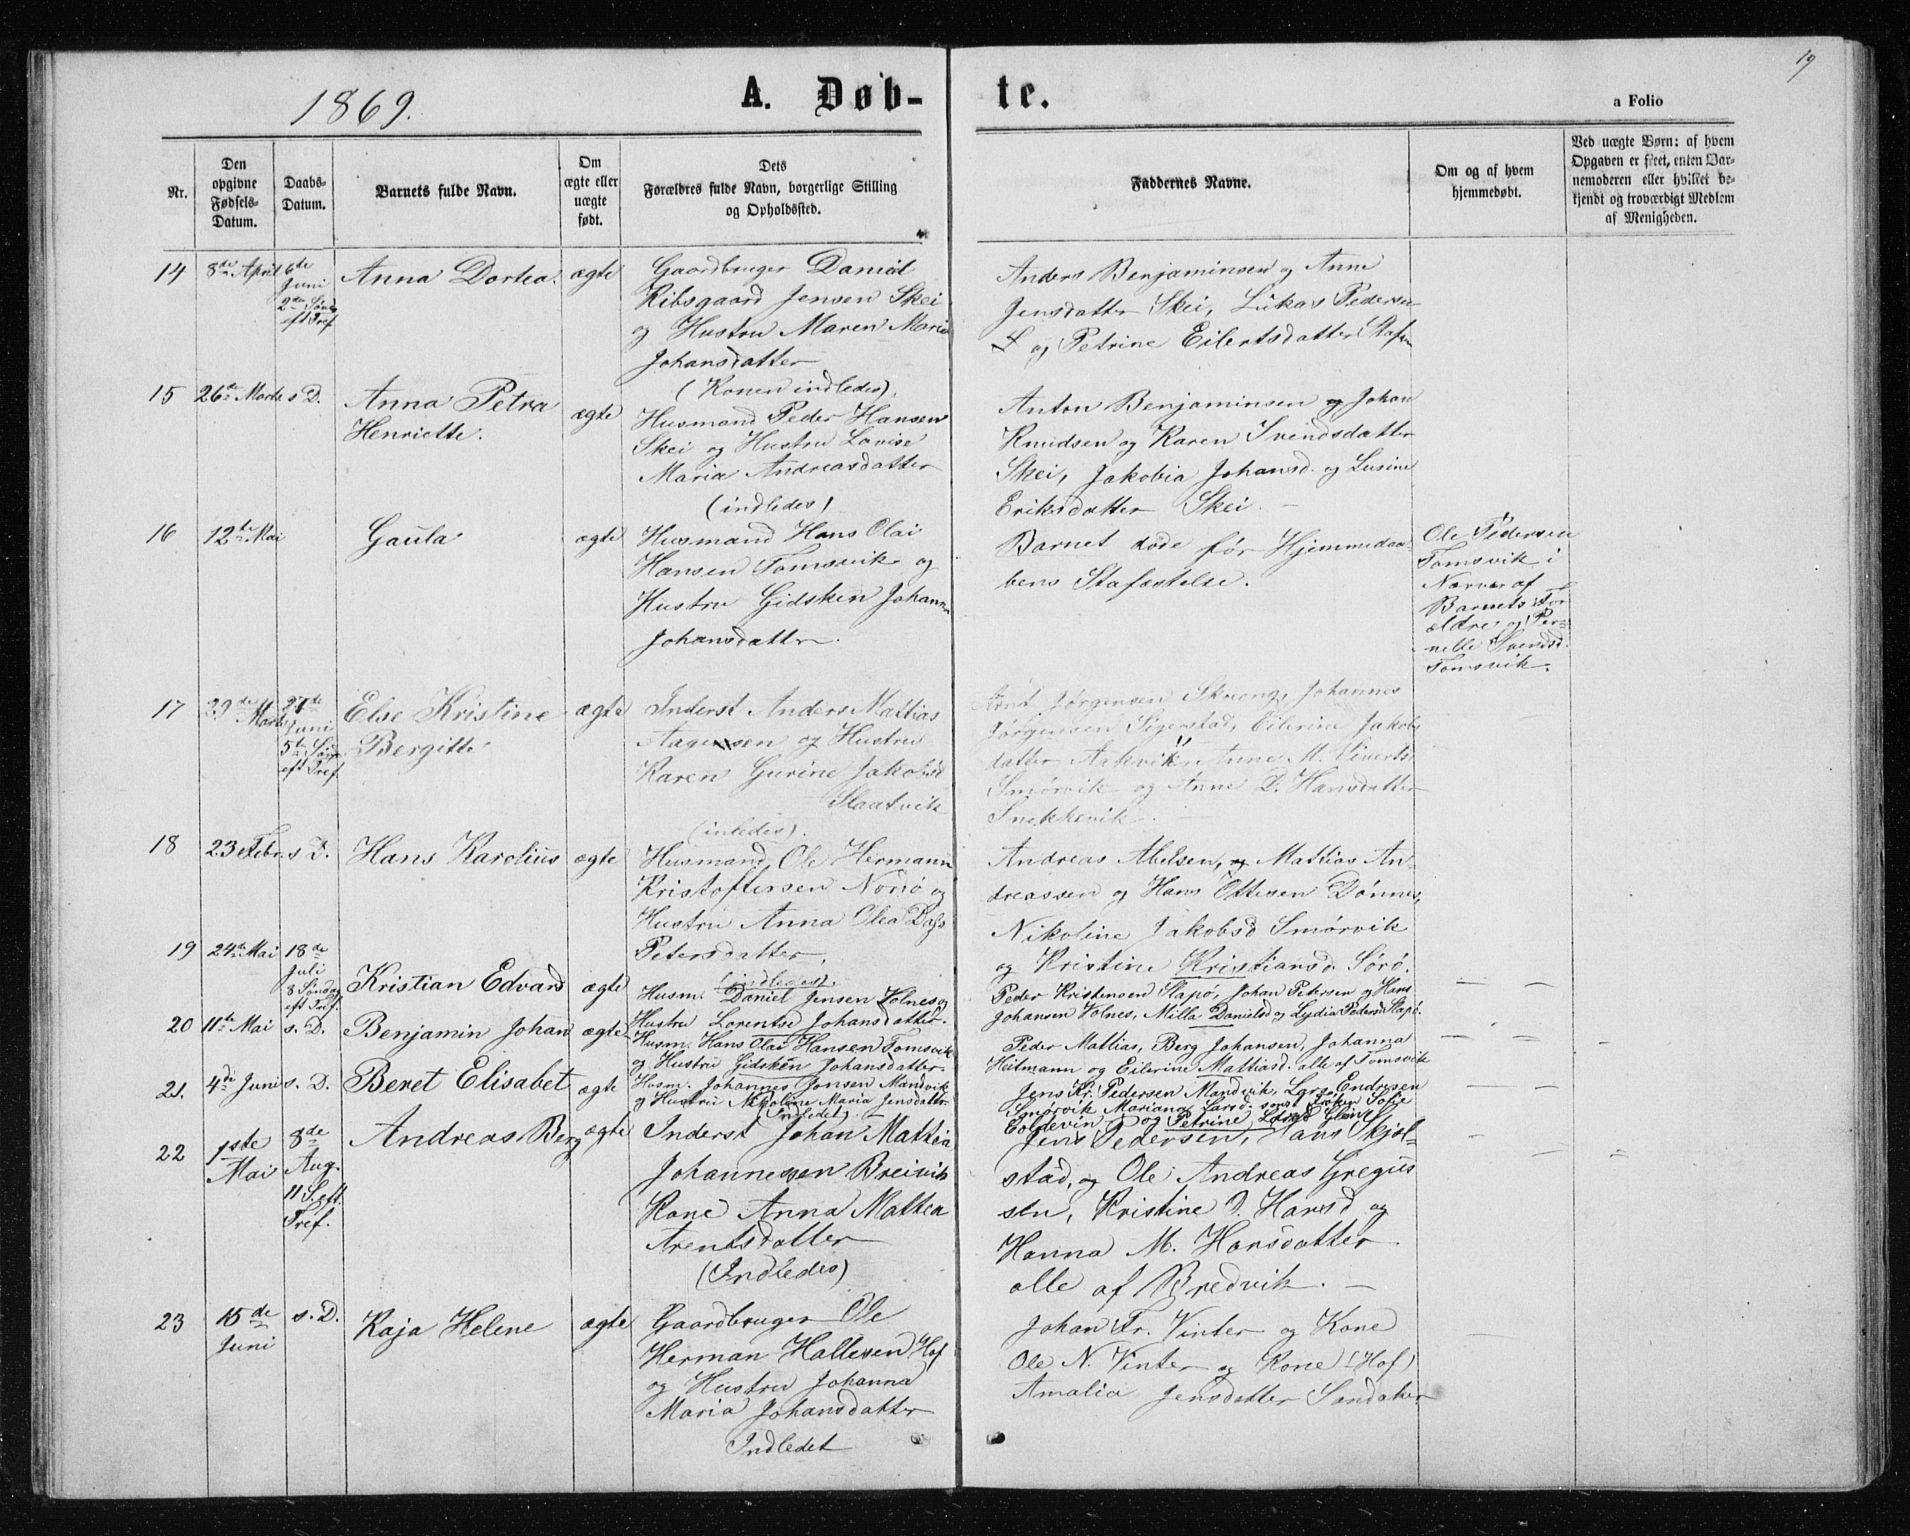 19
1869.
A. Døb-
te.
a Folio
Nr.
Den
opgivne
Fødsels-
Datum.
Daabs-
Datum.
Barnets fulde Navn.
Om
ægte eller
uægte
født.
Dets
Forældres fulde Navn, borgerlige Stilling
og Opholdssted.
Faddernes Navne.
Om og af hvem
hjemmedøbt.
Ved uægte Børn: af hvem
Opgaven er skeet, enten Bar-
nemoderen eller hvilket be-
kjendt og troværdigt Medlem
af Menigheden.
14
8de April
6te
Juni
2den Sønd
eft Tref
Anna Dortea.
ægte
Gaardbruger Daniel
Ribsgaard Jensen Skei
og Hustru Maren Maria
Johansdatter
(Konen indledes).
Anders Benjaminsen og Anne
Jensdatter Skei, Lukas Pedersen
og Petrine Eilertsdatter
15
26de Marts
s D.
Anna Petra
Henriette.
ægte
Husmand Peder Hansen
Skei og Hustru Lovise
Maria Andreasdatter
(indledes)
Anton Benjaminsen og Johan
Knudsen og Karen Svendsdatter
Skei, Jakobia Johansd. og Lusine
Eriksdatter Skei.
16
12te Mai
Gaula
ægte
Husmand Hans Olai
Hansen Tomsvik og
Hustru Gidsken Johanna
Johansdatter.
Barnet døde før Hjemmedaa-
bens Stafæstelse.
Ole Pedersen
Tomsvik i
Nærvær af
Barnets For
ældre og Per-
nelle Svendsd.
Tomsvik.
17
29de
Marts
27de
Juni
5te Sønd
eft Tref.
Else Kristine
Bergitte
ægte
Inderst Anders Mattias
Aagensen og Hustru
Karen Gurine Jakobsd
Slaatvik
(inledes).
Arnt Jørgensen Johannes
Jørgensen Sigerstad, Eilerine Jakobs
datter Aakvik, Anne M. Eiverts
Smørvik og Anne D. Hansdatter
Snekkevik.
18
23 Febr.
s D.
Hans Karolius
ægte
Husmand Ole Hermann
Kristoffersen Nordø og
Hustru Anna Olea Dass
Petersdatter,
(indledes).
Andreas Abelsen, og Mattias An-
dreassen og Hans Ottesen Dønnes,
Nikoline Jakobsd Smørvik
og Kristine Kristiansd. Sørø.
19
24de Mai
18de
Juli
8 Søndag
eft Tref.
Kristian Edvard
ægte
Husm. Daniel Jensen Volnes og
Hustru Lorentse Johansdatter.
Peder Kristensen Slapø, Johan Petersen og Hans
Johansen Volnes, Milla Danielsd og Lydia Pedersd Slapø.
20
11te Mai
s. D.
Benjamin Johan
ægte
Husm. Hans Olai Hansen Tomsvik
og Hustru Gidsken Johansdatter.
Peder Mattias, Berg Johansen, Johanna
Heitmann og Eilerine Mattiasd. alle af Tomsvik
21.
4de Juni
s. D.
Beret Elisabet
ægte
Husm. Johannes Jonsen Mandvik
og Hustru Nikoline Maria Jensdatter
(Indledet).
Jens Kr. Pedersen Mandvik, Lars Endresen
Smørvik Mariane Larsd. samt Frøken Sofie
Coldevin og Petrine Larsd Glein.
22
1ste
Mai
8de
Aug.
11 S. eft.
Tref.
Andreas Berg
ægte
Inderst Johan Mattia
Johannessen Breivik
Kone Anna Mattea
Arentsdatter
(Indledes)
Jens Pedersen, Hans Skjol-
stad, og Ole Andreas Gregus
sen, Kristine D. Hansd og
Hanna M. Hansdatter
alle af Bredvik.
23
15de
Juni
s. D.
Kaja Helene
ægte
Gaardbruger Ole
Herman Hallesen Hof
og Hustru Johanna
Maria Johansdatter
Indledet
Johan Fr. Vinter og Kone
Ole N. Vinter og Kone (Hof)
Amalia Jensdatter Sandaker